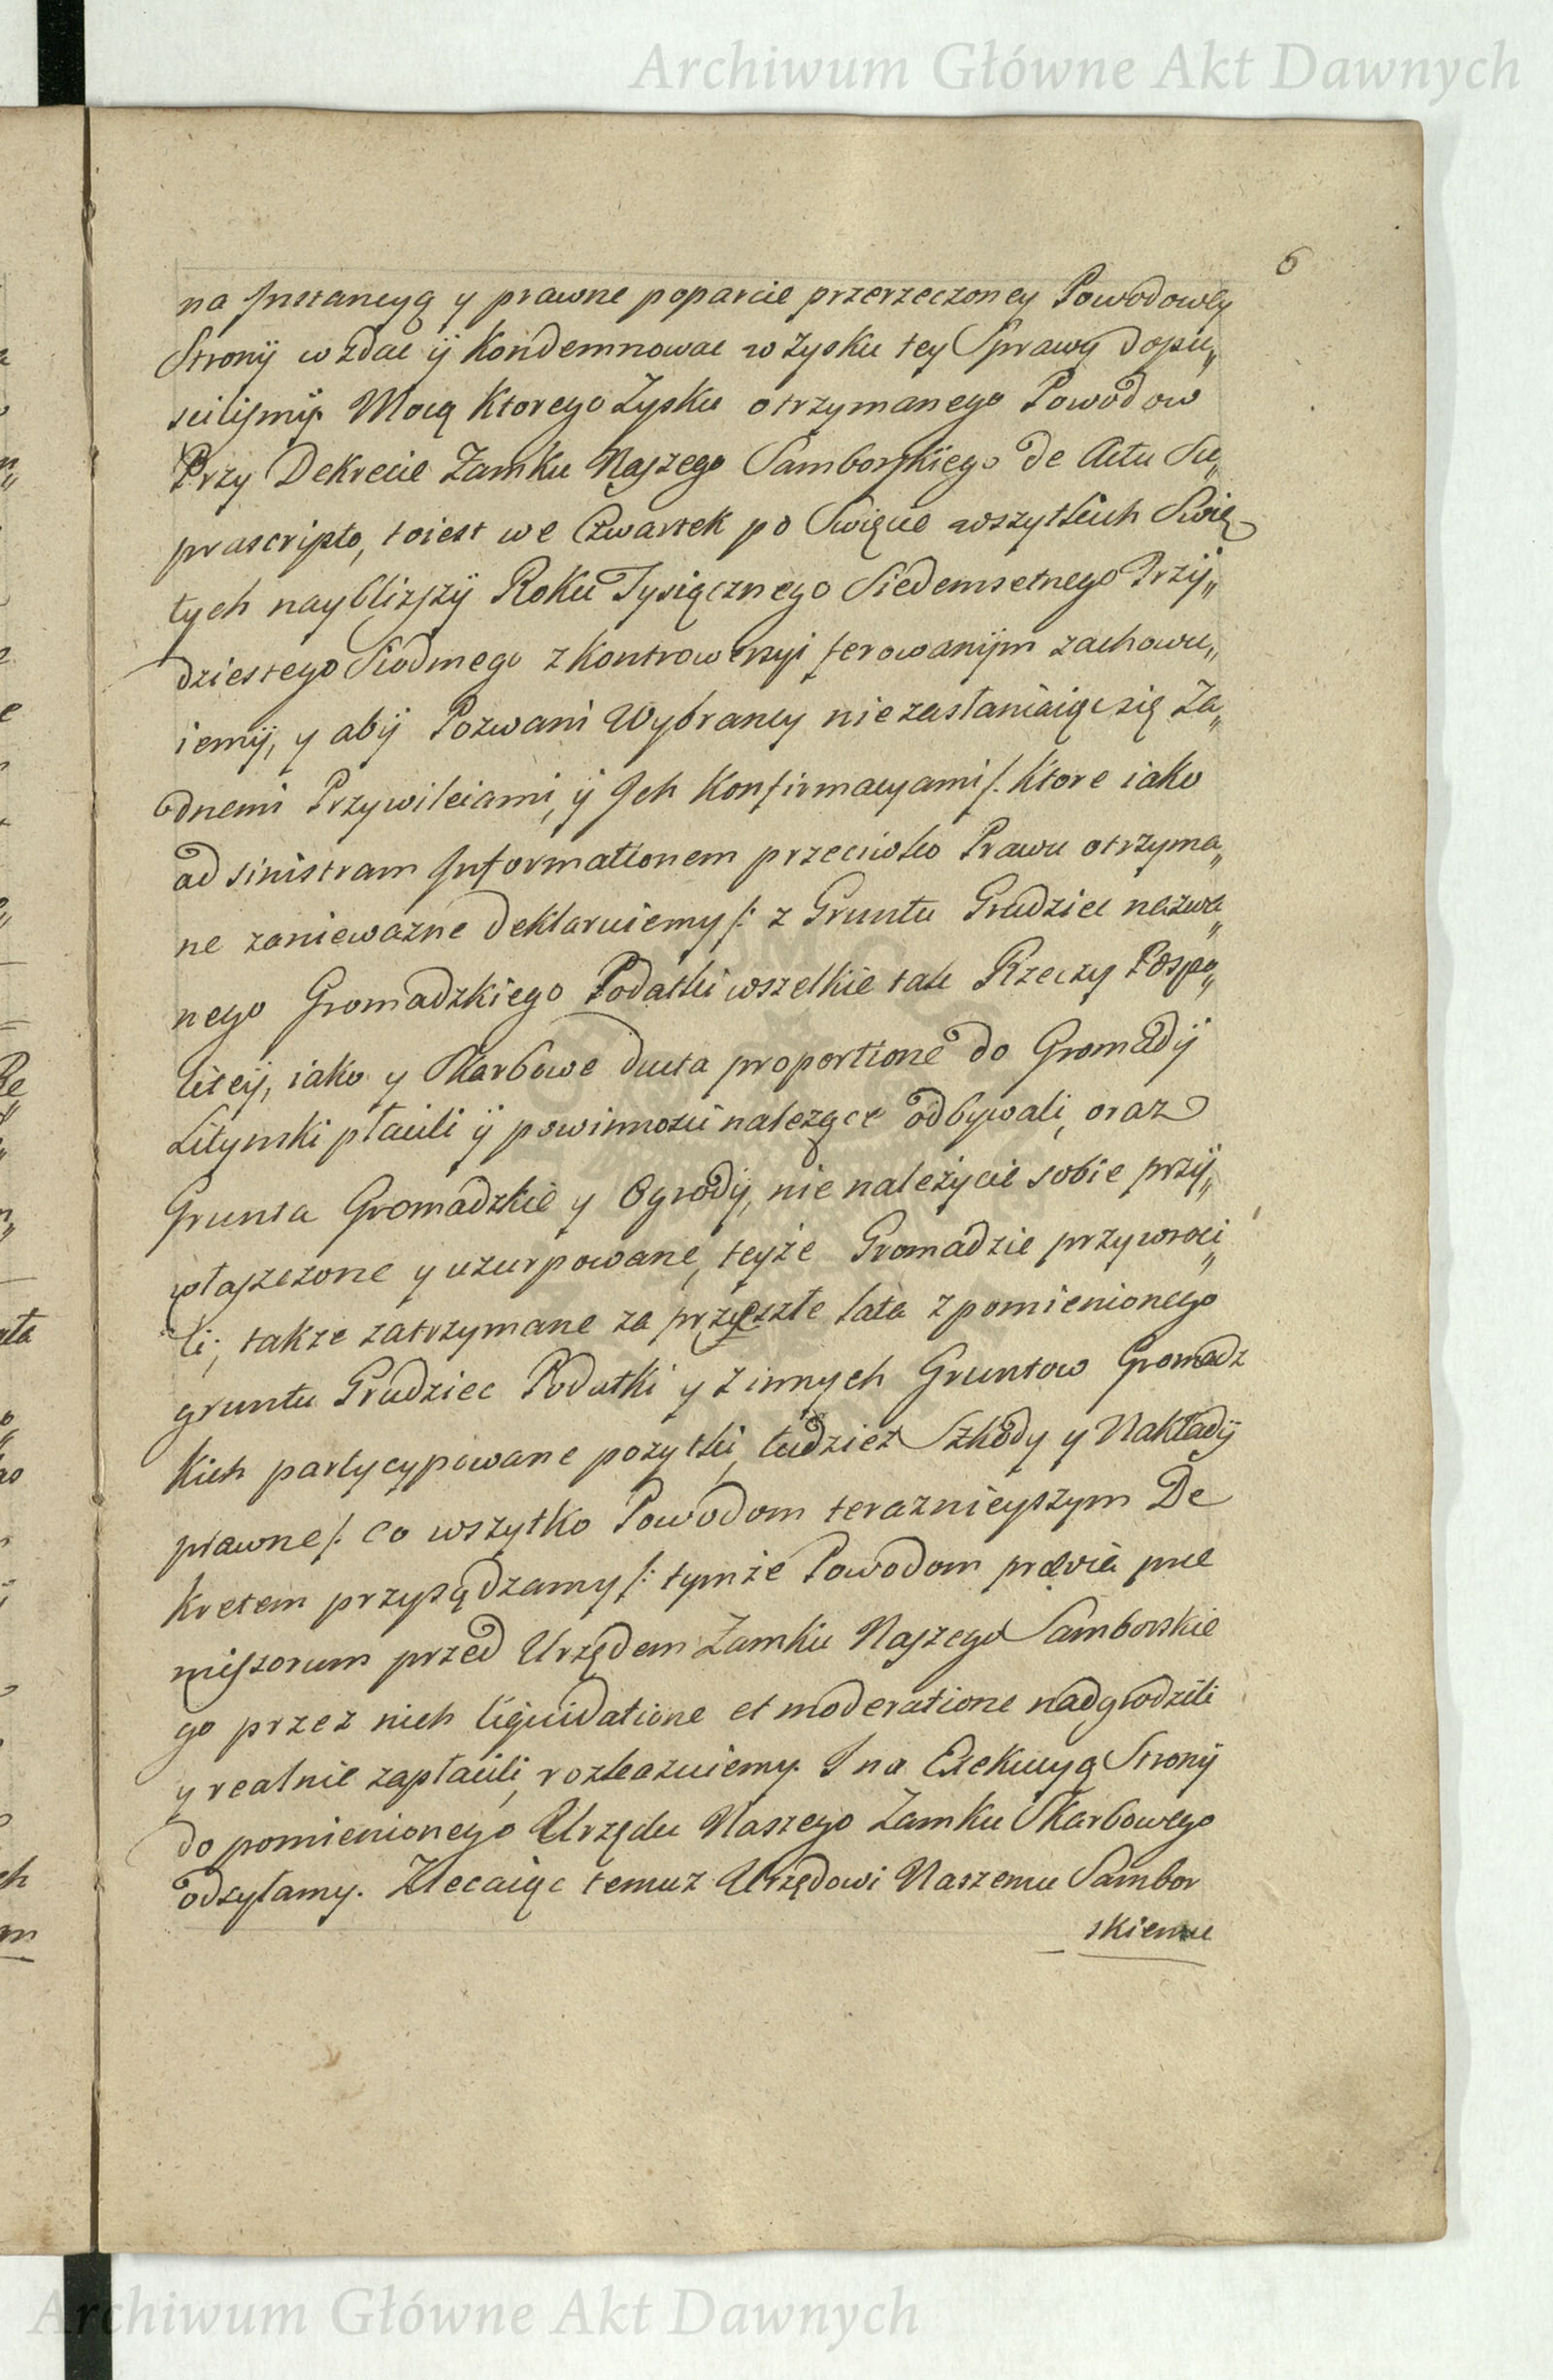 Archiwum Główne Akt Dawnych
6
na Instancyą y prawne poparcie przerzeczoney Powodowey
Strony wzdać ÿ Kondemnować w Zysku tey Sprawy dopu„
scilismÿ. Mocą Ktorego Zysku otrzymanego Powodow
Przy Dekrecie Zamku Naszego Samborskiego de Actu Su„
prascripto, toiest we Czwartek po Swięcie wszytkich Swię„
tych nayblizszÿ Roku Tysiącznego Siedemsetnego Trzÿ„
dziestego Siodmego z Kontrowersyi ferowanÿm zachowu„
iemÿ, y abÿ Pozwani Wybrancy nie zasłaniaiąc się Ża„
dnemi Przywileiami, ÿ Ich Konfirmacyami /: Ktore iako
ad sinistram Informationem przeciwko Prawu otrzyma„
ne zanieważne deklaruiemy /: z Gruntu Grudziec nazwa„
nego Gromadzkiego Podatki wszelkie tak Rzeczy Pospo„
liteÿ, iako y Skarbowe ducta proportione do Gromadÿ
Litynski płacili ÿ powinności nalezące odbywali, oraz
Grunta Gromadzkie y Ogrodÿ, nie należycie sobie przÿ„
właszczone y uzurpowane, teyże Gromadzie przywroci„
li; takze zatrzymane za przeszłe lata z pomienionego
gruntu Grudziec Podatki y z innych Gruntow Gromadz
Kich partycypowane pozytki, tudziesz Szkody y Nakładÿ
prawne /: co wszytko Powodom teraznieyszym De
Kretem przysądzamy /: tymże Powodom prævia præ
missorum przed Urzędem Zamku Naszego Samborskie
go przez nich liquidatione et moderatione nadgrodzili
y realnie zapłacili, rozkazuiemy. I na Exekucyą Stronÿ
do pomienionego Urzędu Naszego Zamku Skarbowego
odsyłamy. Zlecaiąc temuz Urzędowi Naszemu Sambor
skiemu
Archiwum Główne Akt Dawnych